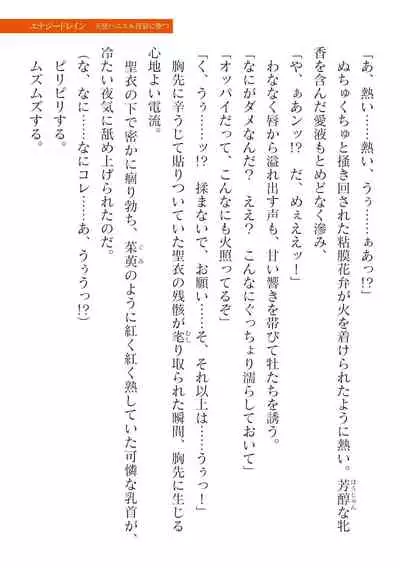 エナジードレイン 天使ハニエル淫獄に堕つ
「あ、熱い……熱い、うぅ……ぁあっ!?」
ぬちゅくちゅと掻き回された粘膜花弁が火を着けられたように熱い。芳醇な牝
ほうじゅん
香を含んだ愛液もとめどなく滲み、
「や、ぁあンッ!? だ、めぇええッ!」
わななく唇から溢れ出す声も、甘い響きを帯びて牡たちを誘う。
「なにがダメなんだ? ええ? こんなにぐっちょり濡らしておいて」
「オッパイだって、こんなにも火照ってるぞ」
「く、うぅ……ッ!? 揉まないで、お願い……そ、それ以上は……うぅっ!」
胸先に辛うじて貼りついていた聖衣の残骸が毟り取られた瞬間、胸先に生じる
むし
心地よい電流。
聖衣の下で密かに痼り勃ち、茱萸のように紅く紅く熟していた可憐な乳首が、
ぐみ
冷たい夜気に舐め上げられたのだ。
(な、なに……なにコレ……あ、うぅうっ!?)
ピリピリする。
ムズムズする。